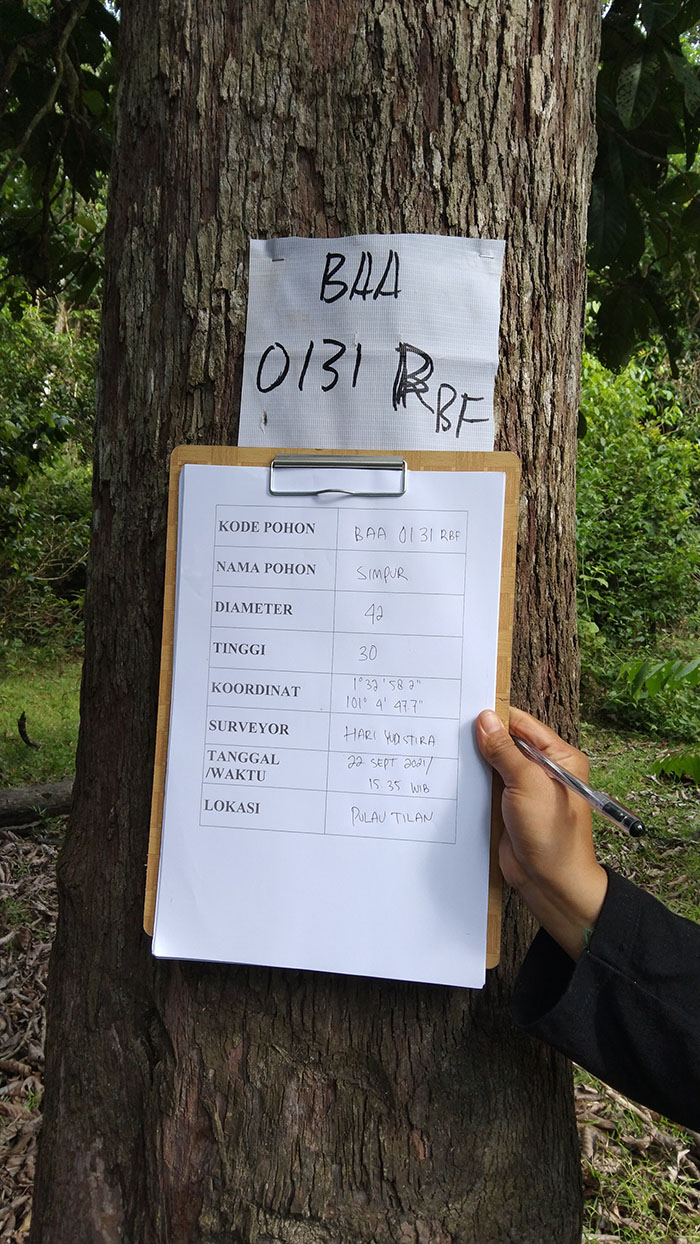 BAA
0131 RBF
KODE POHON BAA 0131 RBF
NAMA POHON SIMPUR
DIAMETER 42
TINGGI 30
KOORDINAT 1°32'58.2"
101° 4' 47.7"
SURVEYOR HARI YUDSTIRA
TANGGAL 22 SEPT 2021/
/WAKTU 15.35 WIB
LOKASI PULAU TILAN